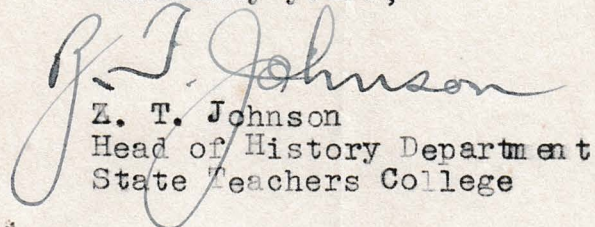 Z. T. Johnson
Z. T. Johnson
Head of History Department
State Teachers College